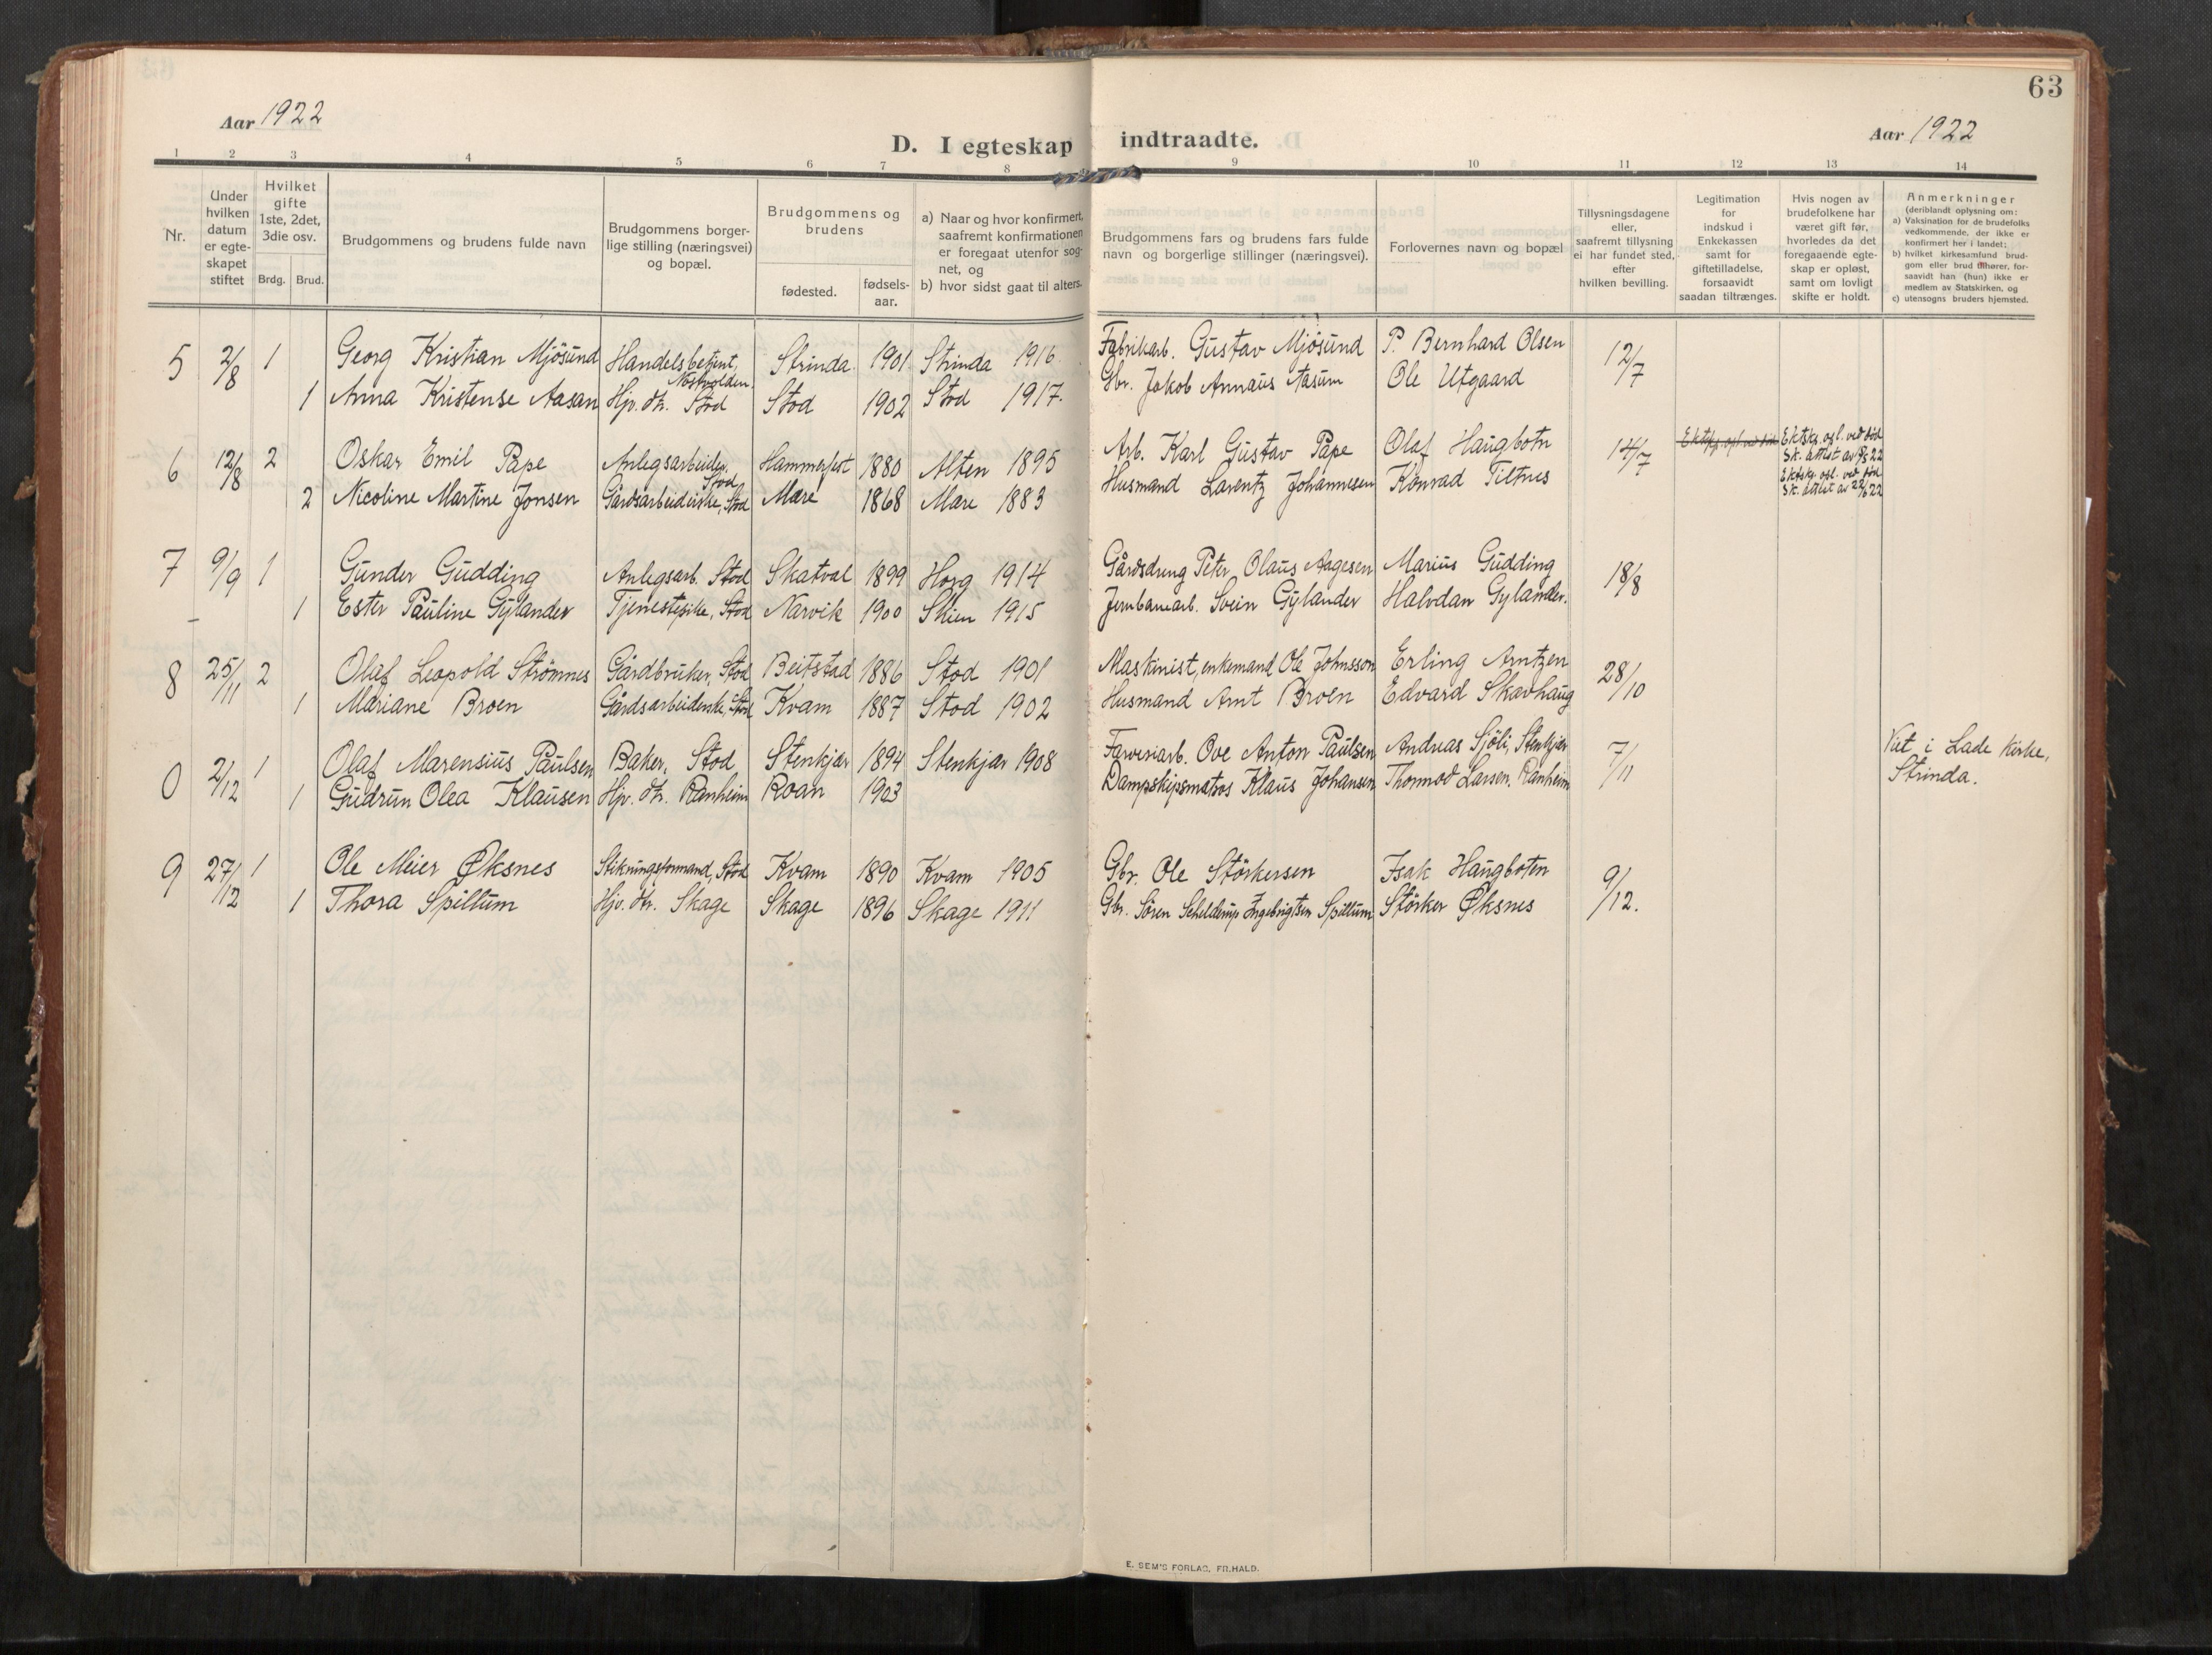 63
Aar 1922
D. I egteskap indtraadte.
Aar 1922
1 2 3 4 5 6 7 8 9 10 11 12 13 14
Nr.
Under hvilken datum er egte-skapet stiftet
Hvilket gifte 1ste, 2det, 3die osv.
Brdg. Brud.
Brudgommens og brudens fulde navn
Brudgommens borger-lige stilling (næringsvei) og bopæl.
Brudgommens og brudens
fødested.
fødsels-aar.
a) Naar og hvor konfirmert, saafremt konfirmationen er foregaat utenfor sog-net, og
b) hvor sidst gaat til alters.
Brudgommens fars og brudens fars fulde navn og borgerlige stillinger (næringsvei).
Forlovernes navn og bopæl
Tillysningsdagene eller, saafremt tillysning ei har fundet sted, efter hvilken bevilling.
Legitimation for indskud i Enkekassen samt for giftetilladelse, forsaavidt saadan tiltrænges.
Hvis nogen av brudefolkene har været gift før, hvorledes da det foregaaende egte-skap er opløst, samt om lovligt skifte er holdt.
Anmerkninger (deriblandt oplysning om:
a) Vaksination for de brudefolks vedkommende, der ikke er konfirmert her i landet;
b) hvilket kirkesamfund brud-gom eller brud tilhører, for-saavidt han (hun) ikke er medlem av Statskirken, og
c) utensogns bruders hjemsted.
5 2/8 1 Georg Kristian Mjösund Handelsbetjent, Strinda 1901 Strinda 1916 Fabrikarb. Gustav Mjösund P. Bernhard Olsen 12/7
1 Anna Kristense Aasan Hjv. dtr. Stod Stod 1902 Stod 1917. Gbr. Jakob Annæus Aasum Ole Utgaard
6 12/8 2 Oskar Emil Pape Anlegsarbeider, Stod Hammerfest 1880 Alten 1895 Arb. Karl Gustav Pape Olaf Haugbotn 14/7 Ektsk. opl. ved död
2 Nicoline Martine Jonsen Gårdsarbeiderske, Stod Mære 1868 Mære 1883 Husmand Larentz Johannesen Konrad Tiltnes Ektsk. opl. ved död Sk. attest av 22/6 22
7 9/9 1 Gunder Gudding Anlegsarb. Stod Skatval 1899 Horg 1914 Gårdsdreng Peter Olaus Aagesen Marius Gudding 18/8
1 Ester Pauline Gylander Tjenestepike, Stod Narvik 1900 Skien 1915 Jernbanearb. Svein Gylander Halvdan Gylander.
8 25/11 2 Olaf Leopold Strömnes Gårdbruker, Stod Beitstad 1886 Stod 1901 Maskinist, enkemand Ole Johnsson Erling Arntzen 28/10
1 Mariane Broen Gårdsarbeiderske, Stod Kvam 1887 Stod 1902 Husmand Arnt Broen Edvard Skavhaug
0 2/12 1 Olaf Marensius Paulsen Baker, Stod Stenkjær 1894 Stenkjær 1908 Farveriarb. Ove Anton Paulsen Andreas Sjöli, Stenkjær 7/11 Viet i Lade kirke,
1 Gudrun Olea Klausen Hjv. dtr. Ranheim Roan 1903 Dampskipsmatros Klaus Johansen Thormod Larsen, Ranheim Strinda.
9 27/12 1 Ole Meier Øksnes Stikningsformand, Stod Kvam 1890 Kvam 1905 Gbr. Ole Störkersen Isak Haugboten 9/12.
1 Thora Spillum Hjv. dtr. Skage Skage 1896 Skage 1911 Gbr. Sören Schelderup Ingebrigtsen Spillum Störker Øksnes
E. SEM'S FORLAG, FR.HALD.